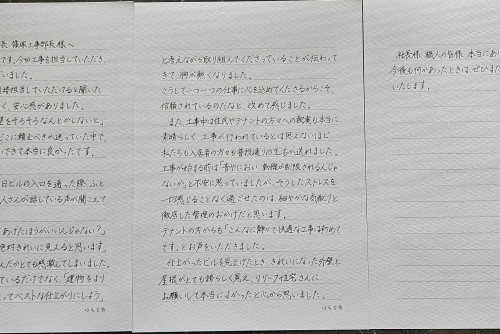 長 篠塚工事部長様へ
です。今回工事を担当していただき、
いました。
担当していただけると聞いた
く、安心感がありました。
壁をそろそろなんとかしないと」
どこに頼むべきか迷っていた中で、
いできて本当に良かったです。
日ビルの入口を通った際、ふと
人さんが話している声が聞こえて
あげたほうがいいんじゃない?」
絶対きれいに見えると思います。
んだかとても感激してしまいました。
ているだけでなく「建物をより
ってベストな仕上がりにしよう」
と考えながら取り組んでくださっていることが伝わって
きて、胸が熱くなりました。
こうして一つ一つの仕事に心を込めてくださるからこそ、
信頼されているのだなと、改めて感じました。
また、工事中は住民やテナントの方々への配慮も本当に
素晴らしく、工事が行われているとは思えないほど、
私たちも入居者の方々も普段通りの生活が送れました。
工事が始まる前は「音やにおい、動線が制限されるんじゃ
ないか」と不安に思っていましたが、そうしたストレスを
一切感じることなく過ごせたのは、細やかな気配りと
徹底した管理のおかげだと思います。
テナントの方からも「こんなに静かで快適な工事は初めて
です」とお声をいただきました。
仕上がったビルを見上げたとき、きれいになった外壁と
屋根がとても誇らしく見え、リリーフ住宅さんに
お願いして本当によかったと心から思いました。
社長様、職人の皆様、本当にあり
今後も何かあったときは、ぜひまた
いたします。